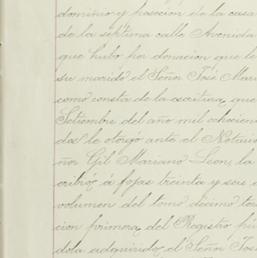 dominio y posecion de la casa
de la séptima calle Avenida
que hubo por donacion que le
su marido el Señor José Mar
como consta de la escritura, que
Setiembre del año mil ochocien
dos le otorgó ante el Notario
ñor Gil Mariano Leon, la
cribió á fojas treinta y seis
volumen del tomo décimo
cion primera, del Registro hi
dola adquirido el Señor José